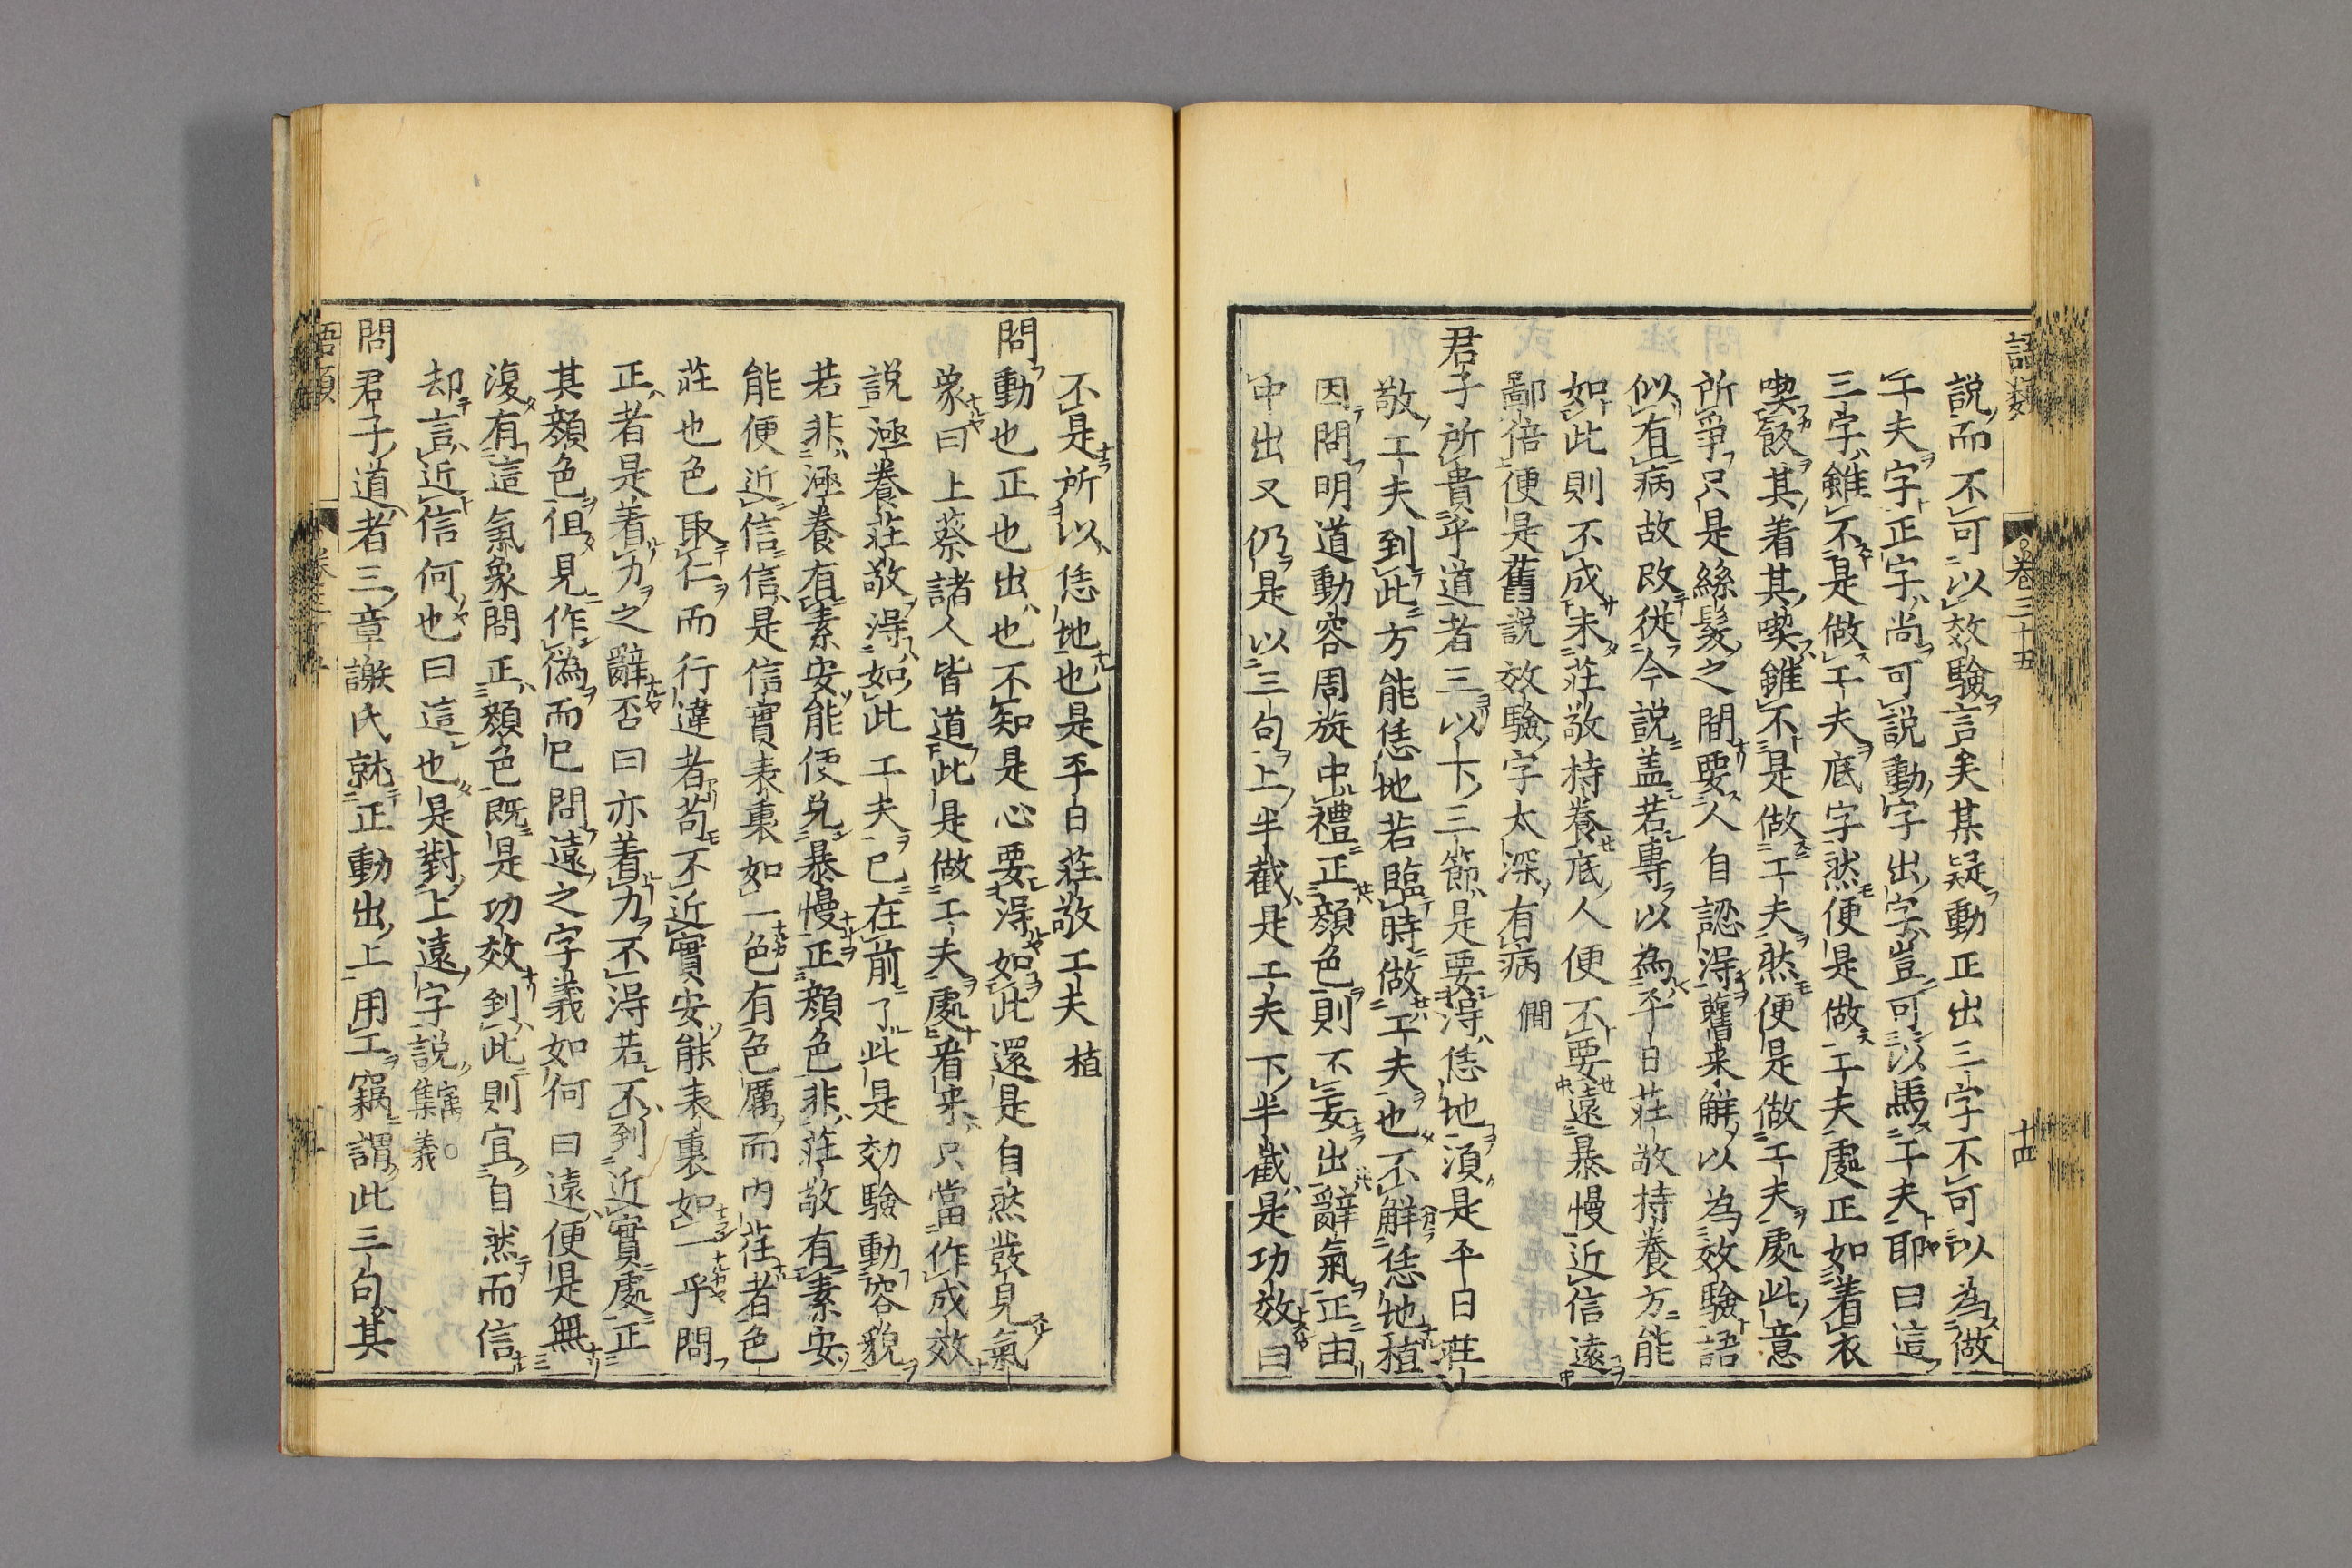 語類 卷三十五 十四
說而不可以效驗言矣某疑動正出三字不可以為做
工夫字正字尚可說動字出字豈可以為工夫耶曰這
三字雖不是做工夫底字然便是做工夫處正如着衣
喫飯其着其喫雖不是做工夫然便是做工夫處此意
所爭只是絲髮之間要人自認得舊来解以為效驗語
似有病故改從今說盖若專以為平日莊敬持養方能
如此則不成未莊敬持養底人便不要遠暴慢近信遠
鄙倍便是舊說效驗字太深有病 僴
君子所貴乎道者三以下三節是要得恁地須是平日莊
敬工夫到此方能恁地若臨時做工夫也不解恁地植
因問明道動容周旋中禮正顏色則不妄出辭氣正由
中出又仍是以三句上半截是工夫下半截是功效曰
不是所以恁地也是平日莊敬工夫 植
問動也正也出也不知是心要得如此還是自然發見氣
象曰上蔡諸人皆道此是做工夫處看来只當作成效
說涵養莊敬得如此工夫已在前了此是効驗動容貌
若非涵養有素安能便免暴慢正顏色非莊敬有素安
能便近信信是信實表裏如一色有色厲而內荏者色
莊也色取仁而行違者苟不近實安能表裏如一乎問
正者是着力之辭否曰亦着力不得若不到近實處正
其顏色但見作偽而已問遠之字義如何曰遠便是無
復有這氣象問正顏色既是功效到此則宜自然而信
却言近信何也曰這也是對上遠字說 㝢○集義
問君子道者三章謝氏就正動出上用工竊謂此三句其
語類